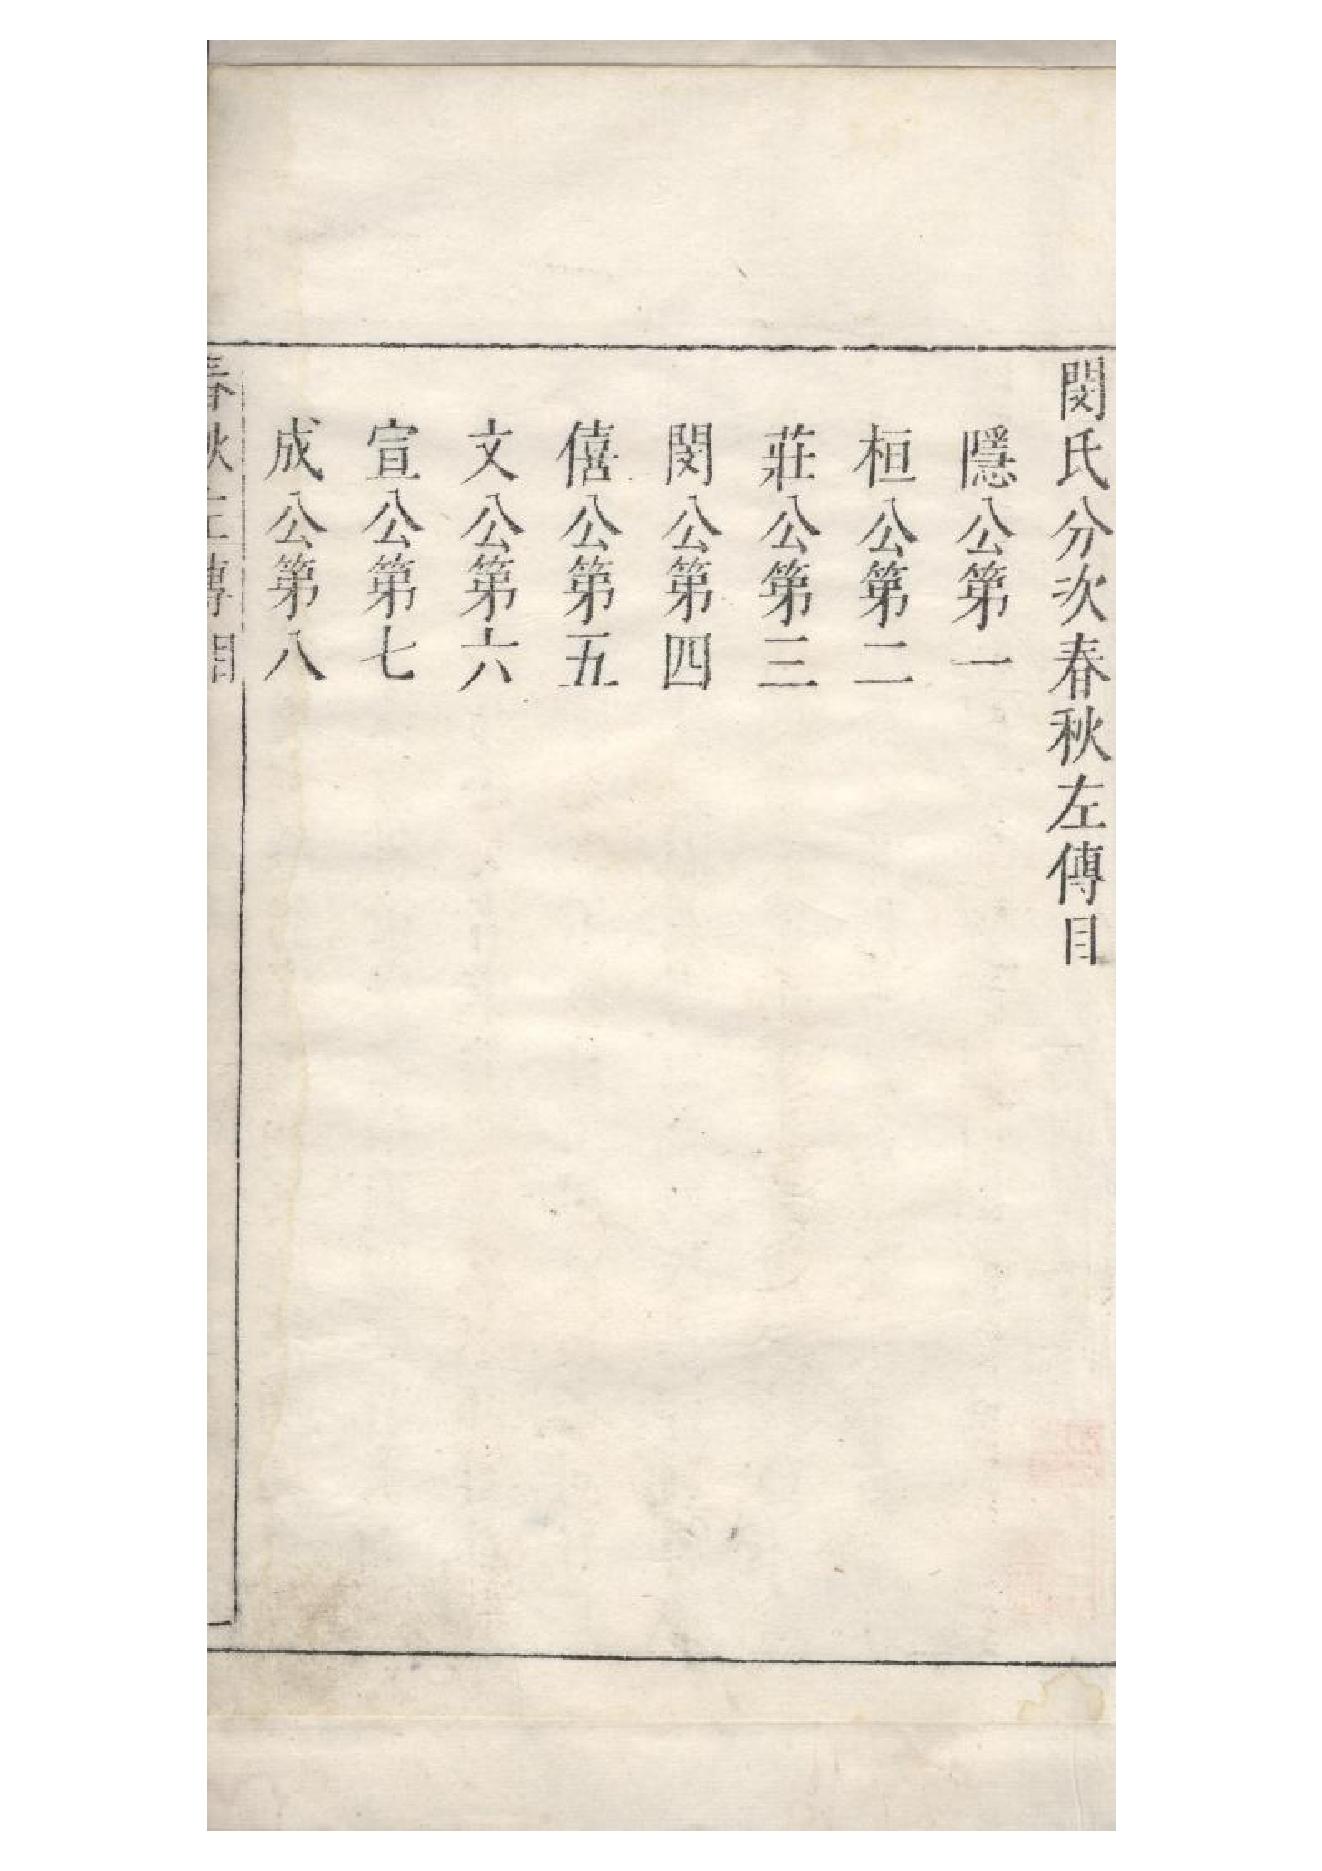 閔氏分次春秋左傳目
隱公第一
桓公第二
莊公第三
閔公第四
僖公第五
文公第六
宣公第七
成公第八
春秋左傳目